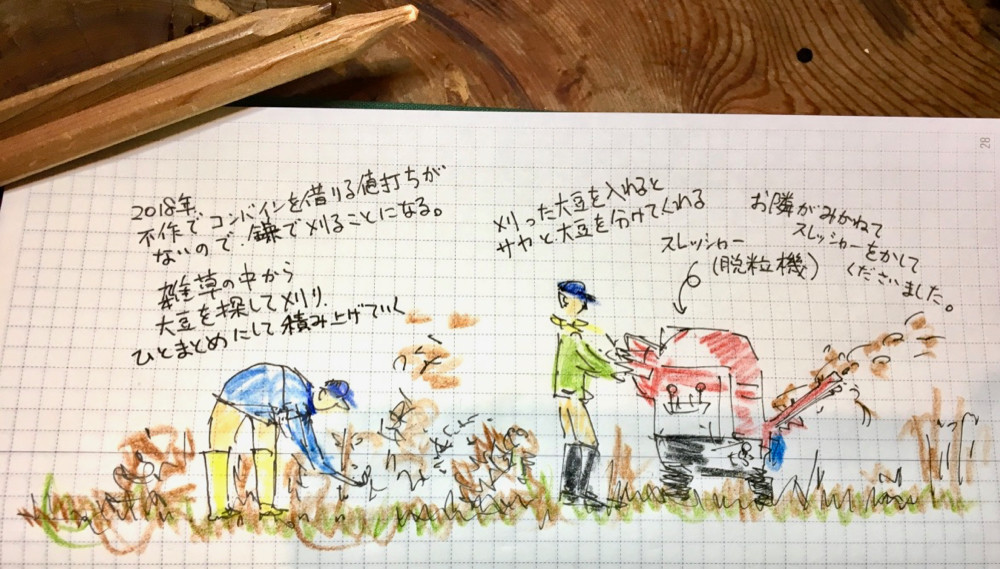 2018年
不作でコンバインを借りる値打ちが
ないので鎌で刈ることになる。
雑草の中から
大豆を探して刈り、
ひとまとめにして積み上げていく
刈った大豆を入れると
サヤと大豆を分けてくれる
スレッシャー
(脱粒機)
お隣がみかねて
スレッシャーをかして
くださいました。
28